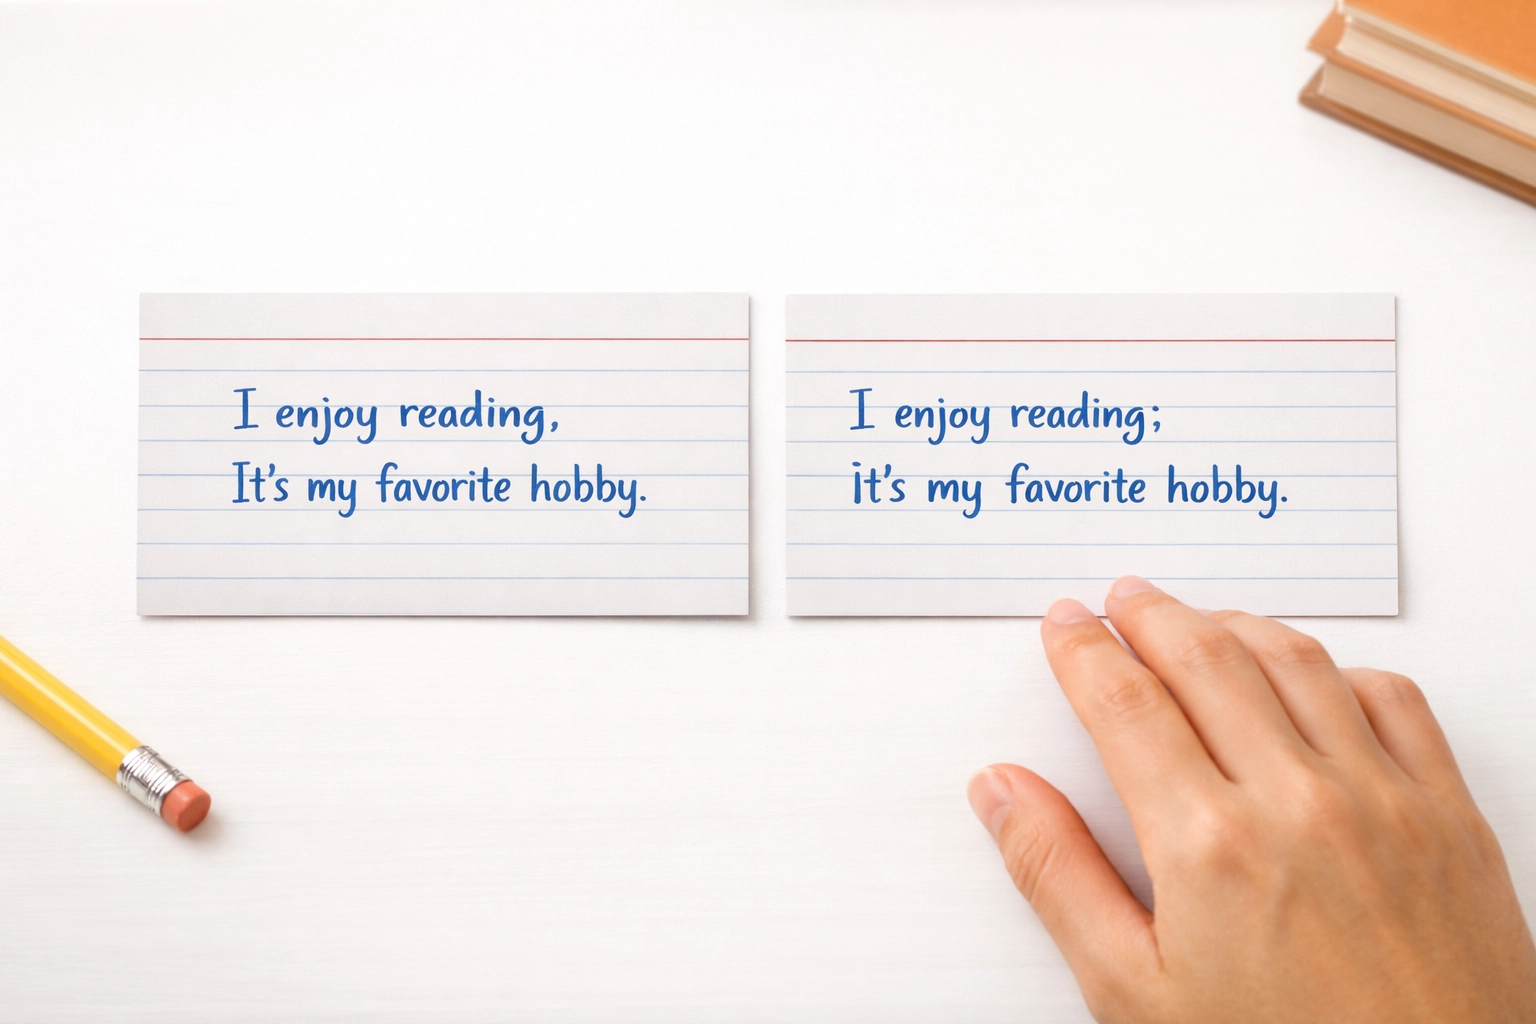 I enjoy reading,
It's my favorite hobby.
I enjoy reading;
it's my favorite hobby.